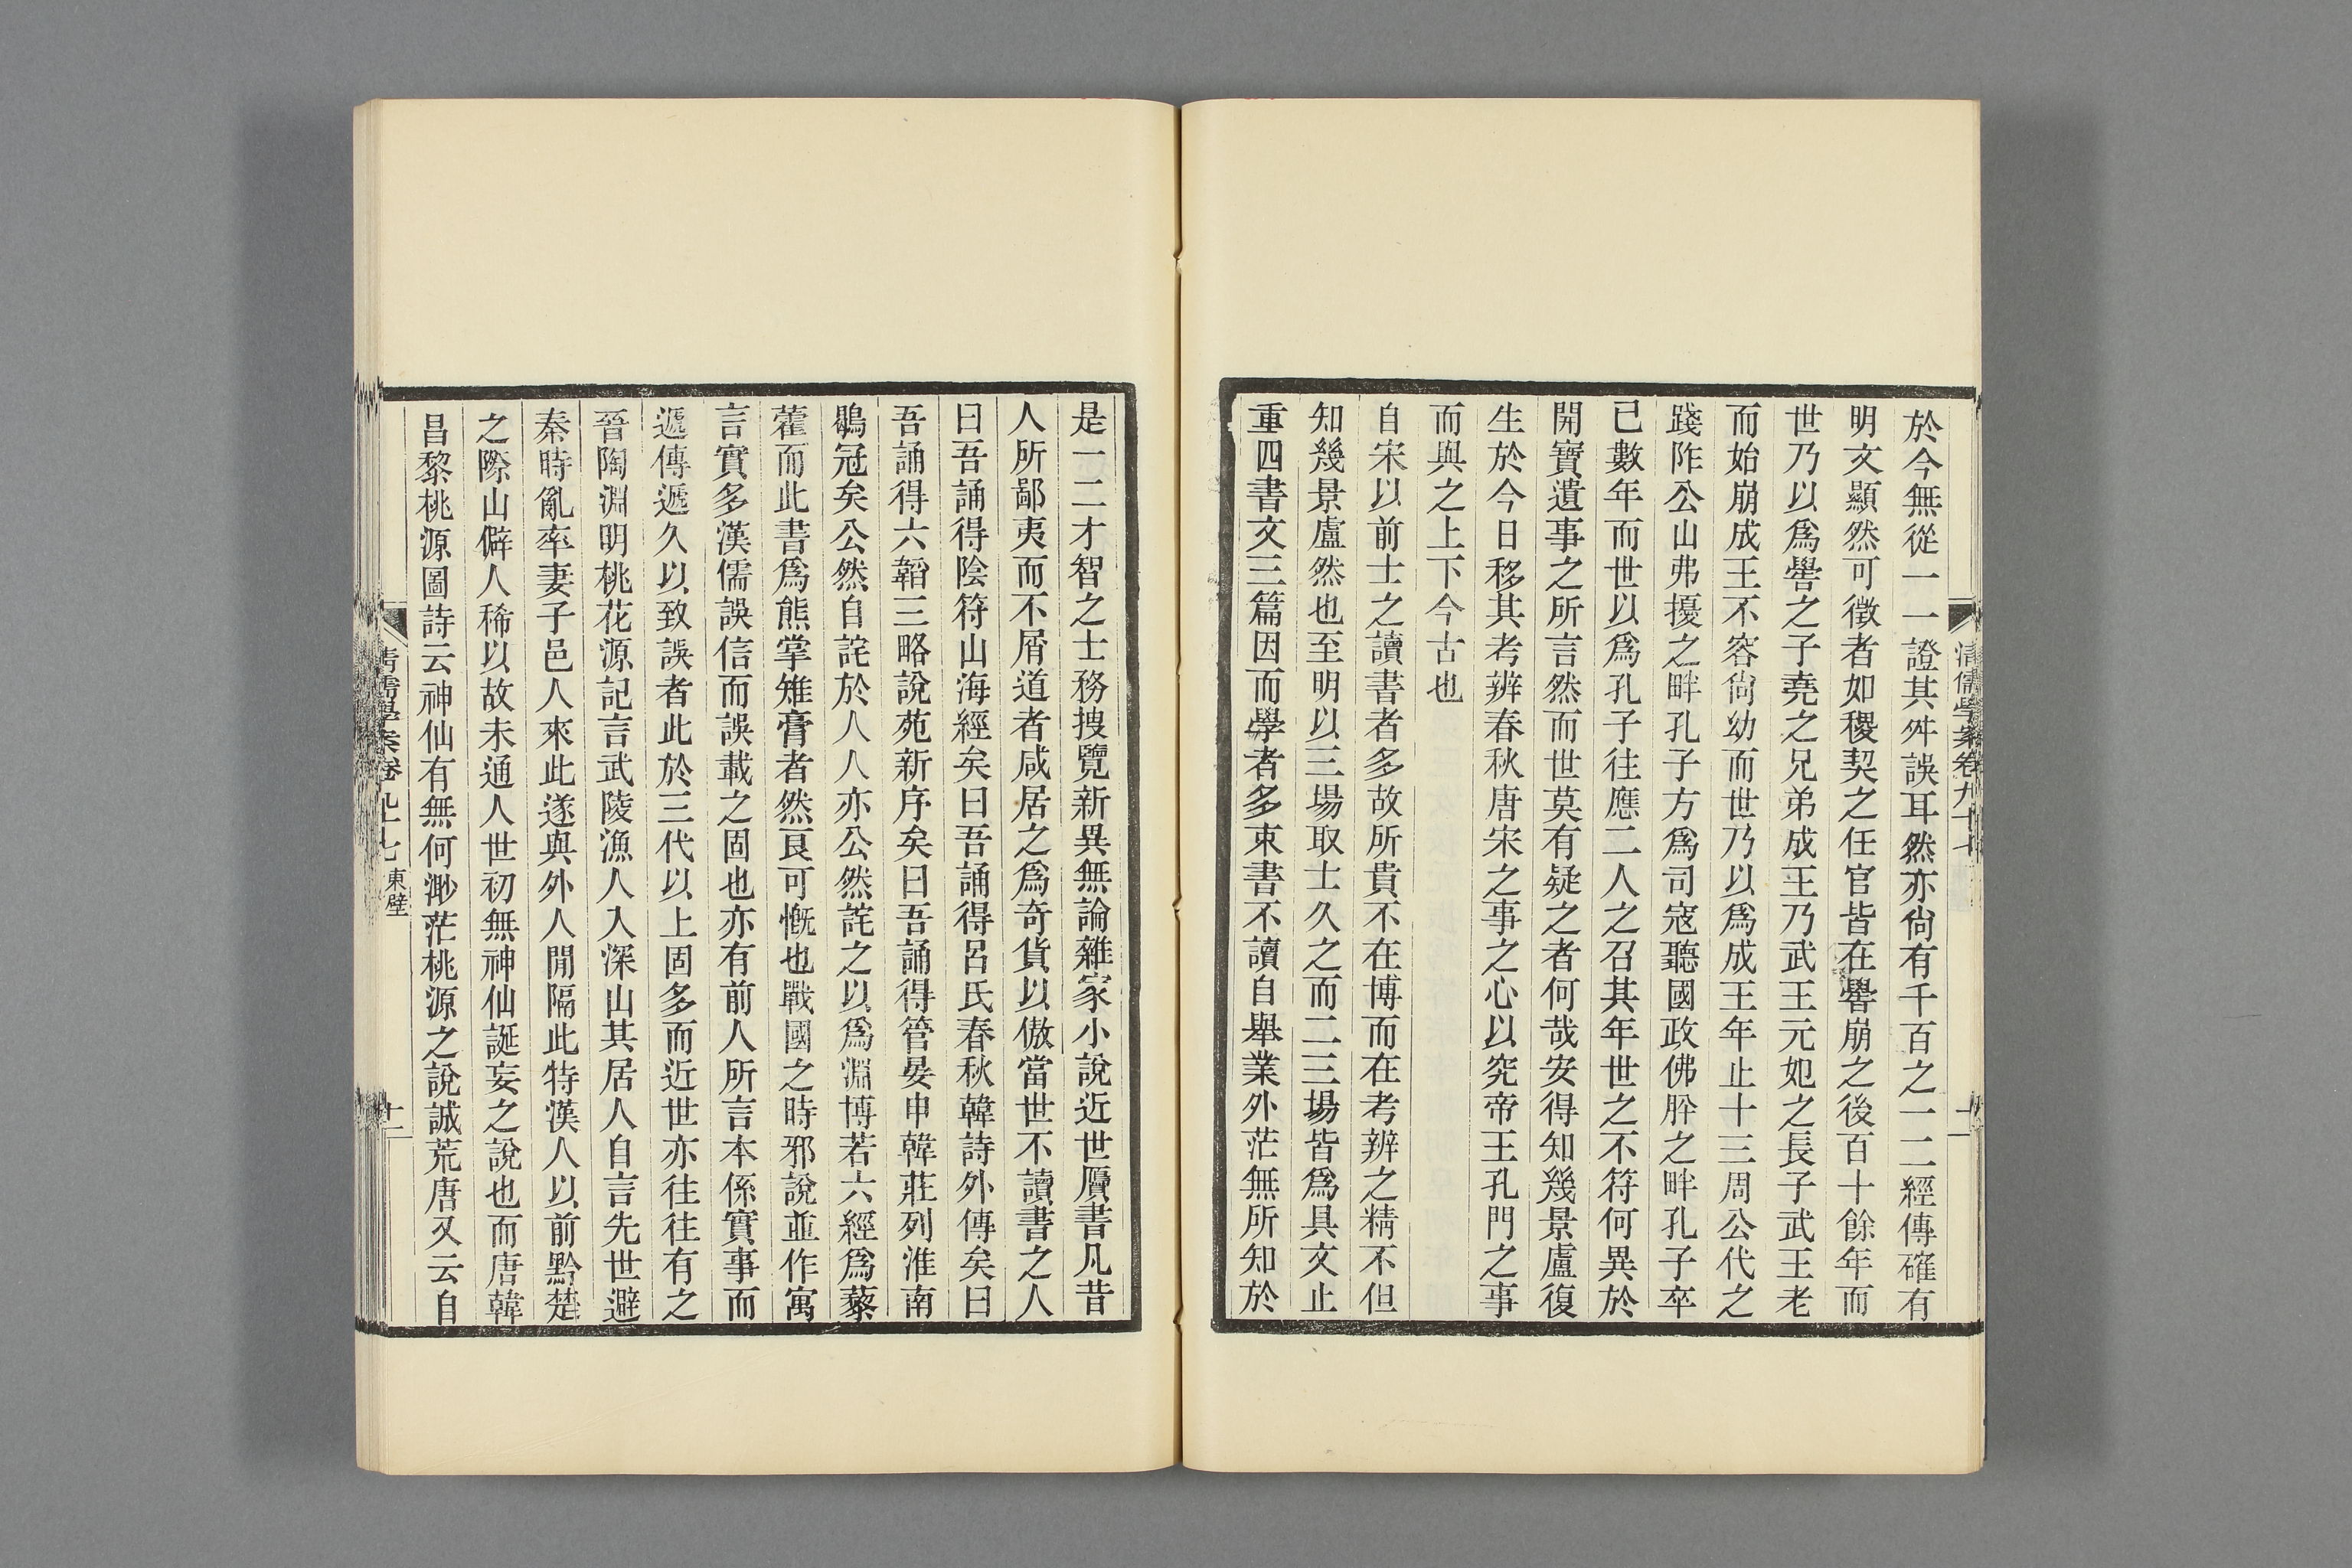 於今無從一一證其舛誤耳然亦尙有千百之一二經傳確有
明文顯然可徵者如稷契之任官皆在嚳崩之後百十餘年而
世乃以爲嚳之子堯之兄弟成王乃武王元妃之長子武王老
而始崩成王不容尙幼而世乃以爲成王年止十三周公代之
踐阼公山弗擾之畔孔子方爲司寇聽國政佛肸之畔孔子卒
已數年而世以爲孔子往應二人之召其年世之不符何異於
開寶遺事之所言然而世莫有疑之者何哉安得知幾景盧復
生於今日移其考辨春秋唐宋之事之心以究帝王孔門之事
而與之上下今古也
自宋以前士之讀書者多故所貴不在博而在考辨之精不但
知幾景盧然也至明以三場取士久之而二三場皆爲具文止
重四書文三篇因而學者多束書不讀自舉業外茫無所知於
清儒學案卷九十七
是一二才智之士務搜覽新異無論雜家小說近世贋書凡昔
人所鄙夷而不屑道者咸居之爲奇貨以傲當世不讀書之人
曰吾誦得陰符山海經矣曰吾誦得呂氏春秋韓詩外傳矣曰
吾誦得六韜三略說苑新序矣曰吾誦得管晏申韓莊列淮南
鶡冠矣公然自詫於人人亦公然詫之以爲淵博若六經爲藜
藿而此書爲熊掌雉膏者然良可慨也戰國之時邪說並作寓
言實多漢儒誤信而誤載之固也亦有前人所言本係實事而
遞傳遞久以致誤者此於三代以上固多而近世亦往往有之
晉陶淵明桃花源記言武陵漁人入深山其居人自言先世避
秦時亂率妻子邑人來此遂與外人閒隔此特漢人以前黔楚
之際山僻人稀以故未通人世初無神仙誕妄之說也而唐韓
昌黎桃源圖詩云神仙有無何渺茫桃源之說誠荒唐又云自
清儒學案卷九十七 東壁
十二